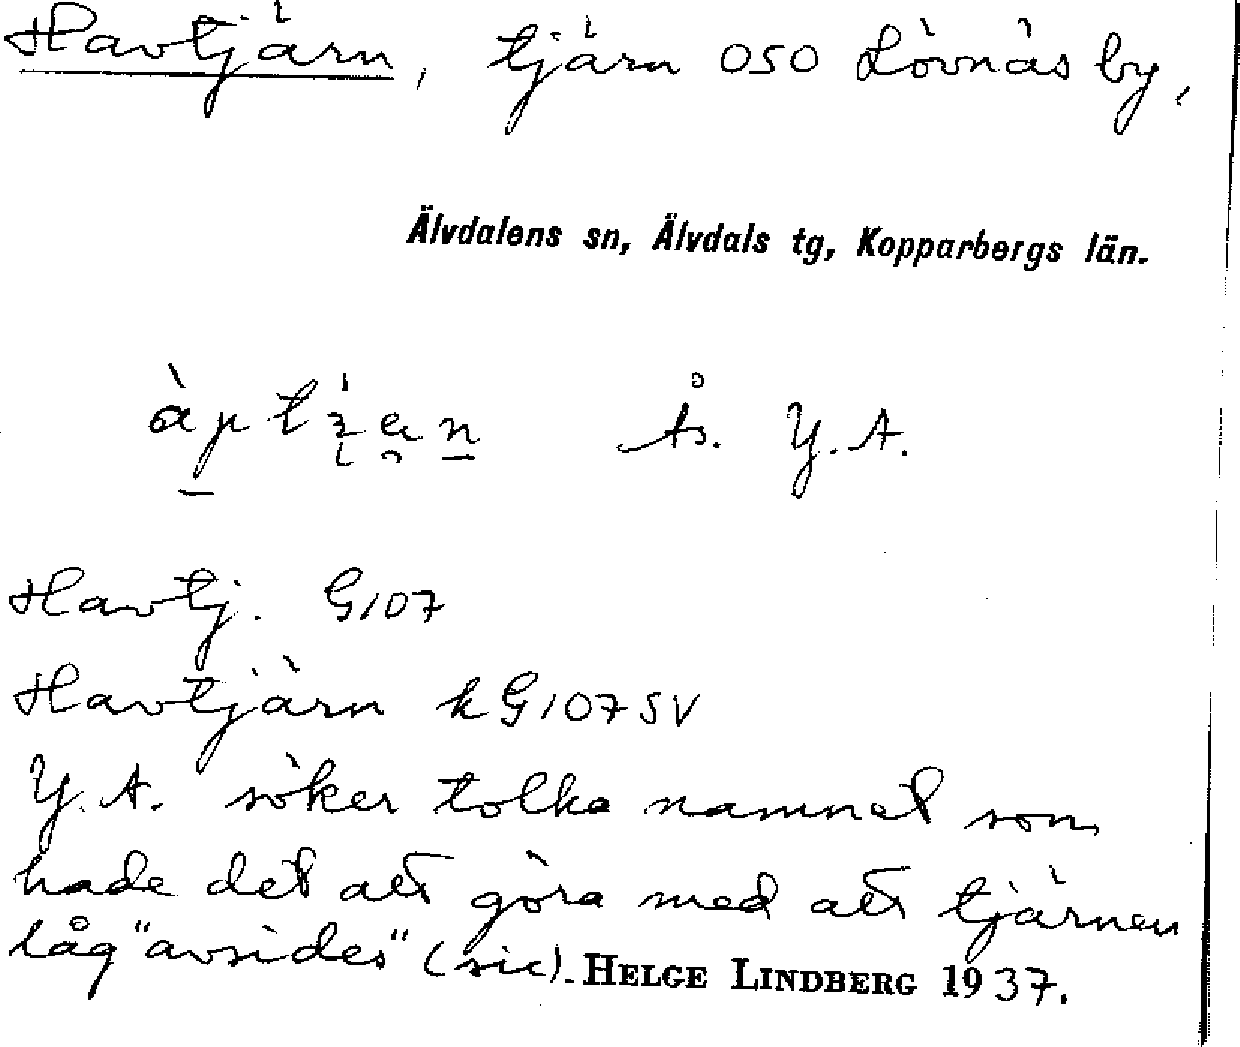 Havtjärn, tjärn OSO Lövnäs by,
Älvdalens sn, Älvdals tg, Kopparbergs län.
Ås. Y. A.
Havtj. G107
Havtjärn kG107SV
Y. A. söker tolka namnet som
hade det att göra med att tjärnen
låg "avsides" (sic). HELGE LINDBERG 1937.